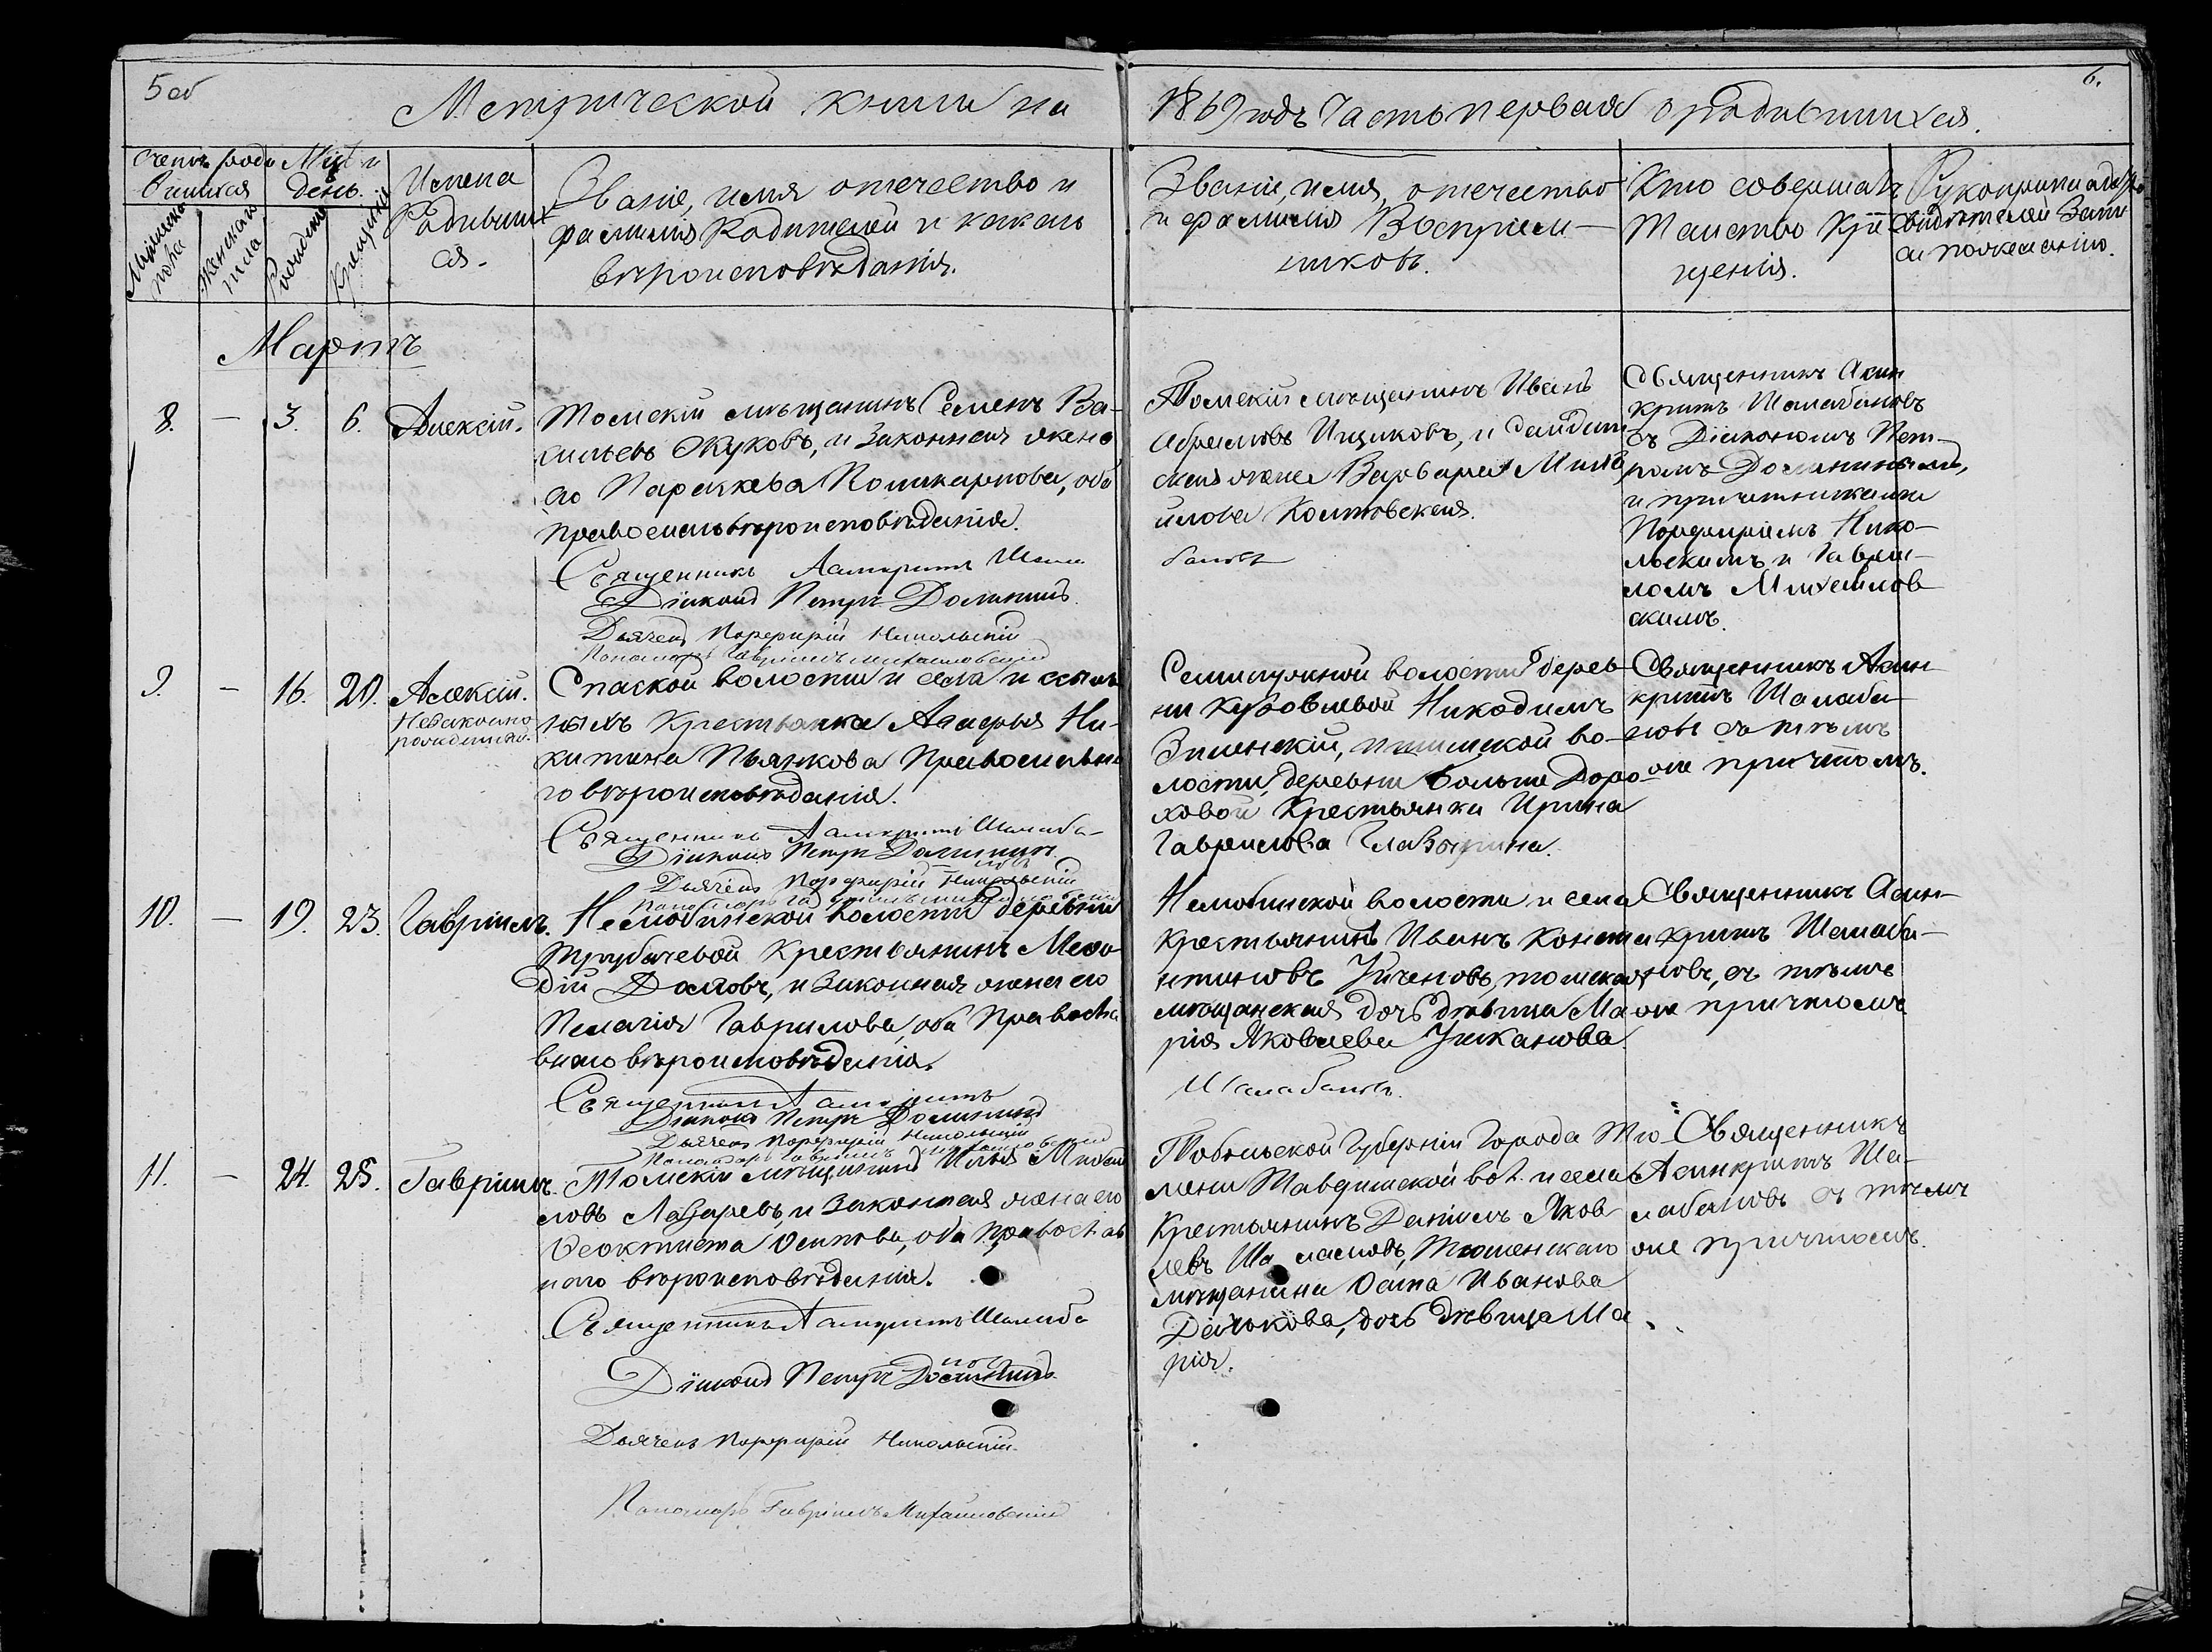 5 об
6.
Метрической книги на
1869 годъ Часть первая о родившихся.
Счетъ роди
вшихся
Мужеска
пола
Женскаго
пола
Мцъ и
день.
Рожденія
Крещенія
Имена
Родивших
ся.
Званіе, имя отечество и
фамилія Родителей и какаго
вѣроисповѣданія.
Званіе, имя, отечество
и фамилія Воспріем-
никовъ.
Кто совершалъ
Таинство Кре
щенія.
Рукоприкладство
свидѣтелей Запи
си по желанію.
Мартъ
8. - 3. 6. Алексій.
Томскій мѣщанинъ Семенъ Ва-
сильевъ Жуковъ, и Законная жена
его Параскева Поликарпова, оба
православ вѣроисповѣданія.
Священникъ Асинкритъ Шала
бановъ
Діаконъ Петръ Долининъ
Дьячекъ Порфирій Никольскій
Пономарь Гавріилъ Михайловскій
Томскій мѣщанинъ Иванъ
Абрамовъ Ицыковъ, и
жена Варвара Миха
илова
Священникъ Асин
критъ Шалабановъ
съ Діакономъ Пет-
ромъ Долининымъ,
и причетниками
Порфиріемъ Нико-
льскимъ и Гаврі-
ломъ Михайлов
скимъ.
9. - 16. 20. Алексій.
Незаконно
рожденный.
Спаской волости и села
Крестьянка Ни-
китина Пьянкова Православна
го вѣроисповѣданія.
Священникъ Асинкритъ Шалаба-
новъ
Діаконъ Петръ Долининъ
Дьячекъ Порфирій Никольскій
Пономарь Гавріилъ Михайловскій
Семилужной волости дерев
ни Никодимъ
во-
лости, деревни Больше Доро
ховой Крестьянка Ирина
Гаврилова
Священникъ Асин
критъ Шалаба-
новъ съ тѣмъ
же причтомъ.
10. - 19. 23. Гавріилъ.
Нелюбинской волости деревни
Трубачевой Крестьянинъ Мефо
дій и Законная жена его
Пелагія Гаврилова, оба Правосла
внаго вѣроисповѣданія.
Священникъ Асинкритъ
Шалабановъ.
Діаконъ Петръ Долининъ
Дьячекъ Порфирій Никольскій
Пономарь Гавріилъ Михайловскій
Нелюбинской волости и села
Крестьянинъ Иванъ Конста
нтиновъ томская
мѣщанская дочь дѣвица Ма
рія Яковлева
Священникъ Асин-
критъ Шалаба-
новъ, съ тѣмъ
же причтомъ
11. - 24. 25. Гавріилъ.
Томскій мѣщанинъ Илья Михай
ловъ Лазаревъ, и Законная жена его
Ѳеоктиста Осипова, оба Православ
наго вѣроисповѣданія.
Священникъ Асинкритъ Шалаба
новъ
Діаконъ Петръ Долининъ
Дьячекъ Порфирій Никольскій.
Пономарь Гавріилъ Михайловскій
Тобольской Губерніи Города Тю
мени Тавдинской вол. и села
Крестьянинъ Даніилъ Яков
левъ Тюменскаго
мѣщанина Иванова
дочь дѣвица Ма
рія.
Священникъ
Асинкритъ Ша-
лабановъ съ тѣмъ
же причтомъ.